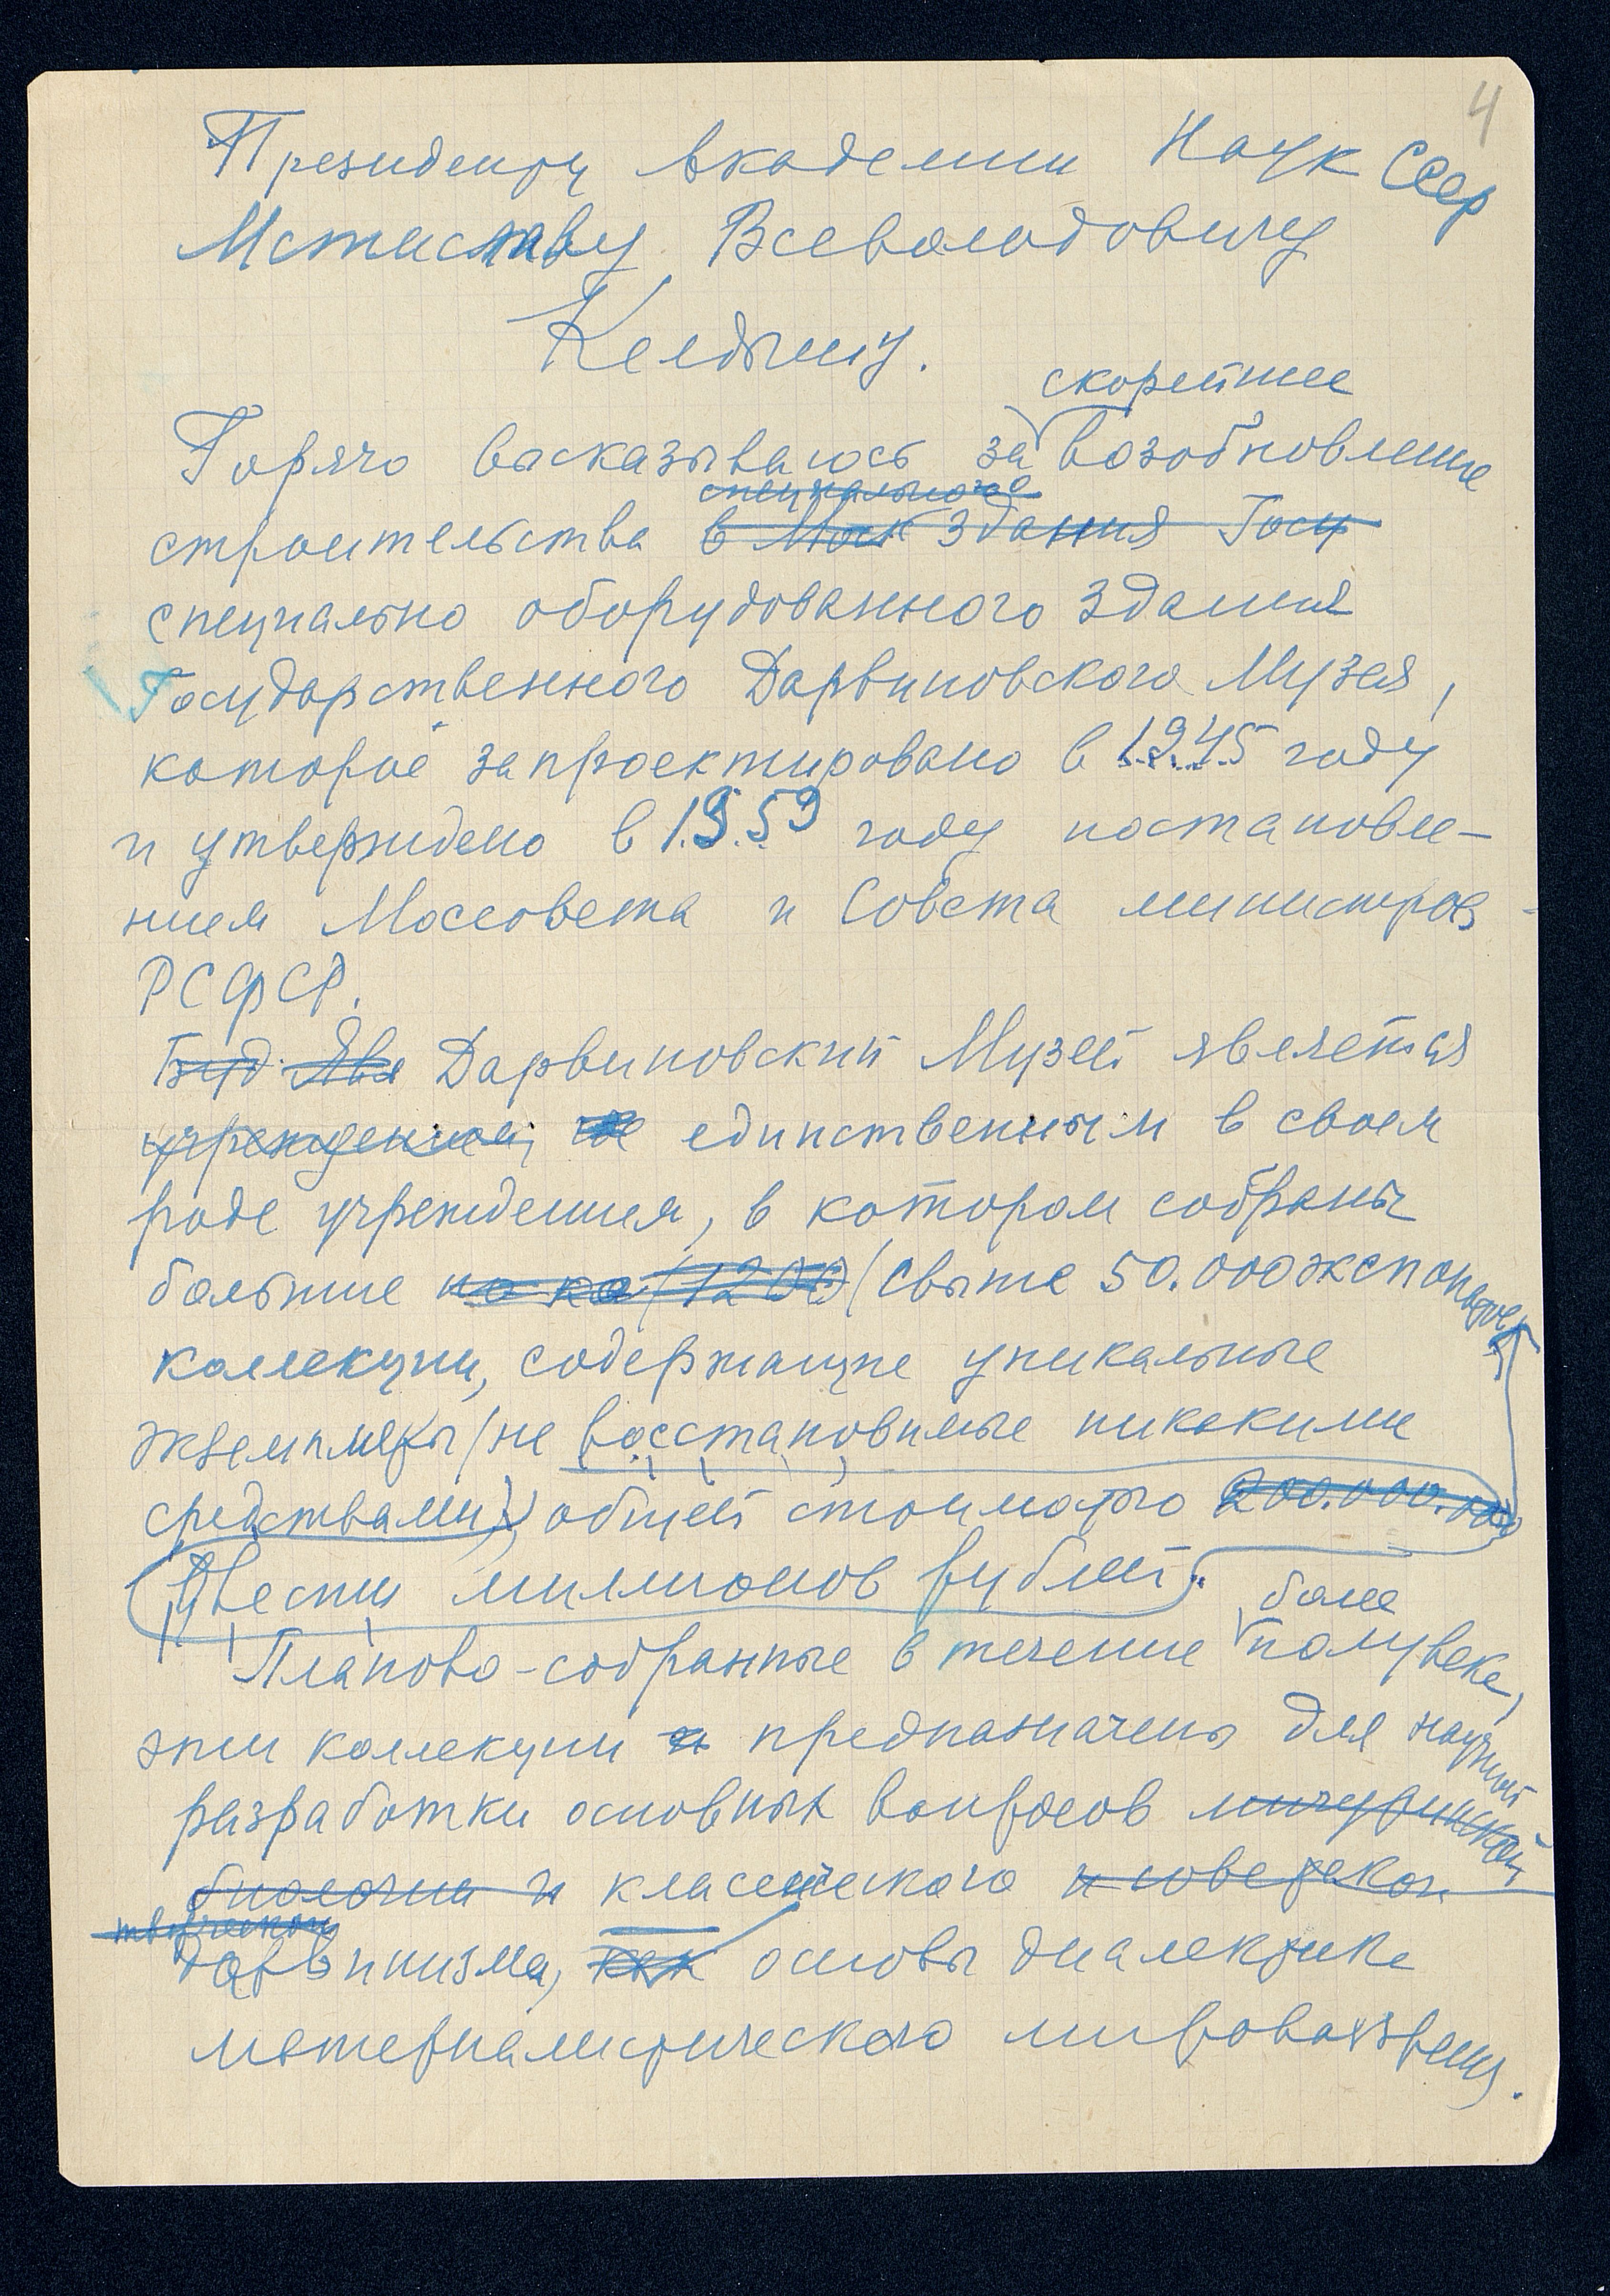 4
Президенту Академии Наук СССР
Мстиславу Всеволодовичу
Келдышу.
скорейшее
Горячо высказываюсь за возобновление
специального
строительства в Моск здания Госу
специально оборудованного здания
Государственного Дарвиновского Музея,
которое запроектировано в 1945 году
и утверждено в 1959 году постановле-
нием Моссовета и Совета министров
РСФСР.
Буд Явл Дарвиновский Музей является
учреждением, единственным в своем
роде учреждением, в котором собраны
большие (1200) (свыше 50.000 экспонатов)
коллекции, содержащие уникальные
экземпляры (не восстановимые никакими
средствами), общей стоимостью 200.000.000
Двести миллионов рублей.
более
Планово-собранные в течение полувека,
эти коллекции и предназначены для научной
разработки основных вопросов мичуринской
биологии и классического и советского
творческого
дарвинизма, как основы диалектико
материалистического мировоззрения.